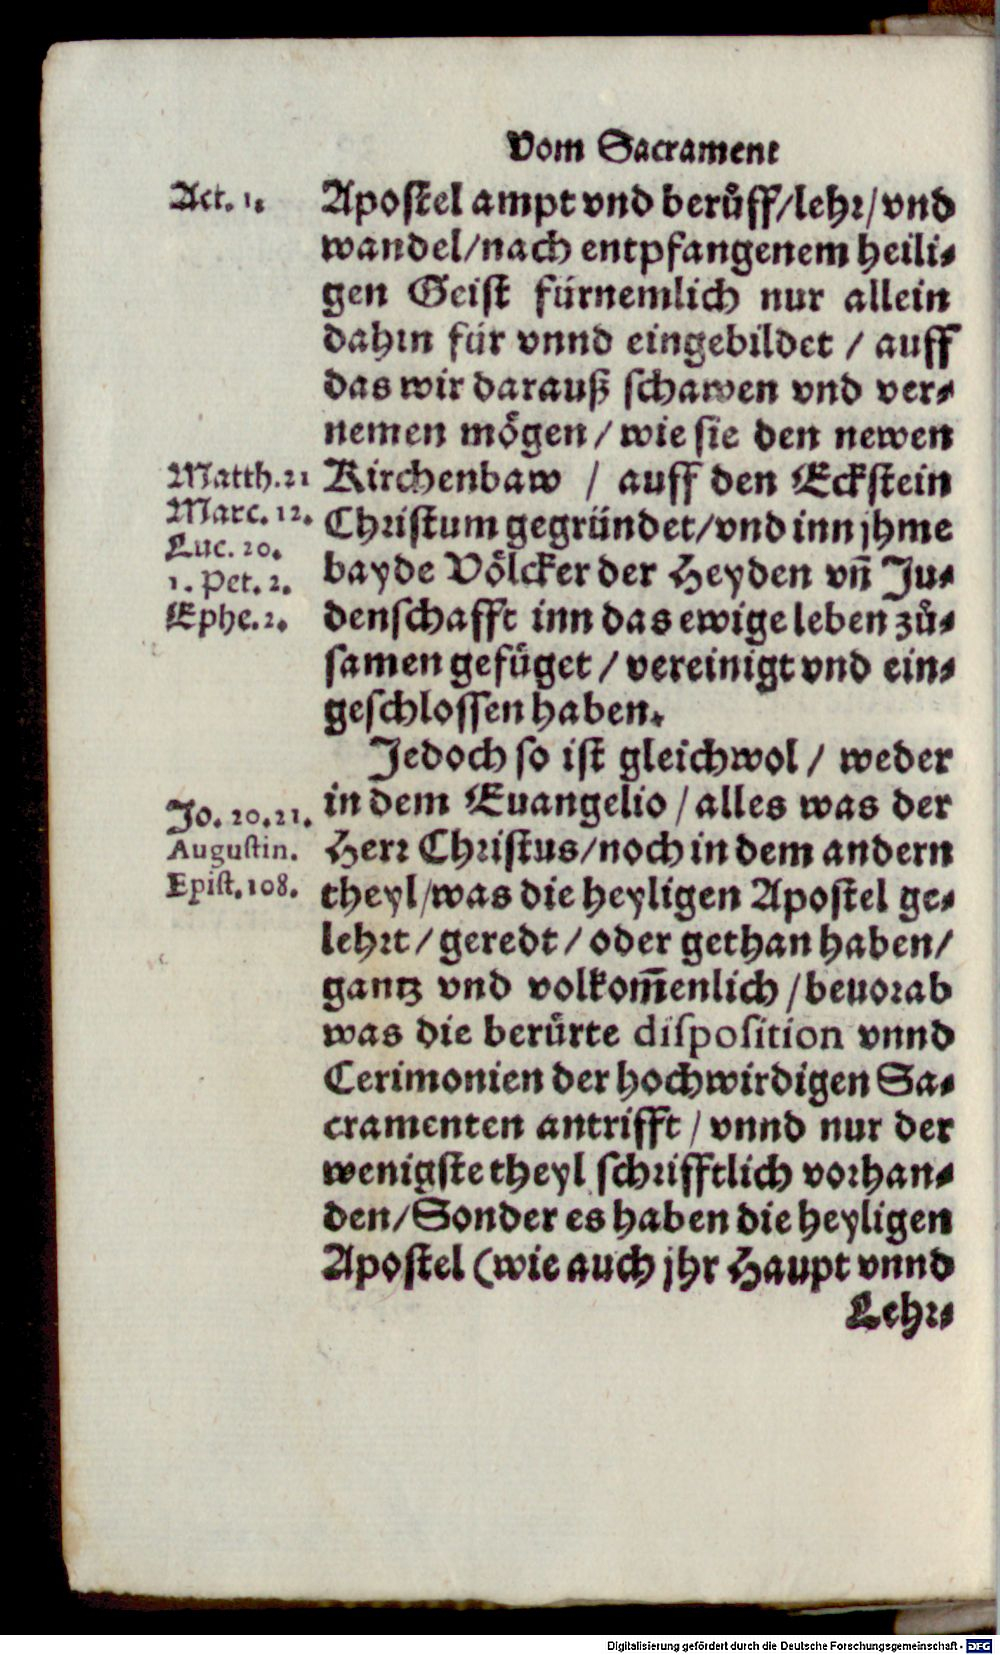 Vom Sacrament
Act. 1.
Apostel ampt vnd berůff/lehr/vnd
wandel/nach entpfangenem heili-
gen Geist fürnemlich nur allein
dahin für vnnd eingebildet / auff
das wir darauß schawen vnd ver-
nemen mögen / wie sie den newen
Matth. 21
Marc. 12.
Luc. 20.
1. Pet. 2.
Ephe. 2.
Kirchenbaw / auff den Eckstein
Christum gegründet/vnd inn jhme
bayde Völcker der Heyden vn̄ Ju-
denschafft inn das ewige leben zů-
samen gefüget / vereinigt vnd ein-
geschlossen haben.
Jedoch so ist gleichwol / weder
Jo. 20. 21.
Augustin.
Epist. 108.
in dem Euangelio / alles was der
Herr Christus/noch in dem andern
theyl/was die heyligen Apostel ge-
lehrt / geredt / oder gethan haben/
gantz vnd volkom̄enlich / beuorab
was die berürte disposition vnnd
Cerimonien der hochwirdigen Sa-
cramenten antrifft / vnnd nur der
wenigste theyl schrifftlich vorhan-
den/Sonder es haben die heyligen
Apostel (wie auch jhr Haupt vnnd
Lehr-
Digitalisierung gefördert durch die Deutsche Forschungsgemeinschaft - DFG